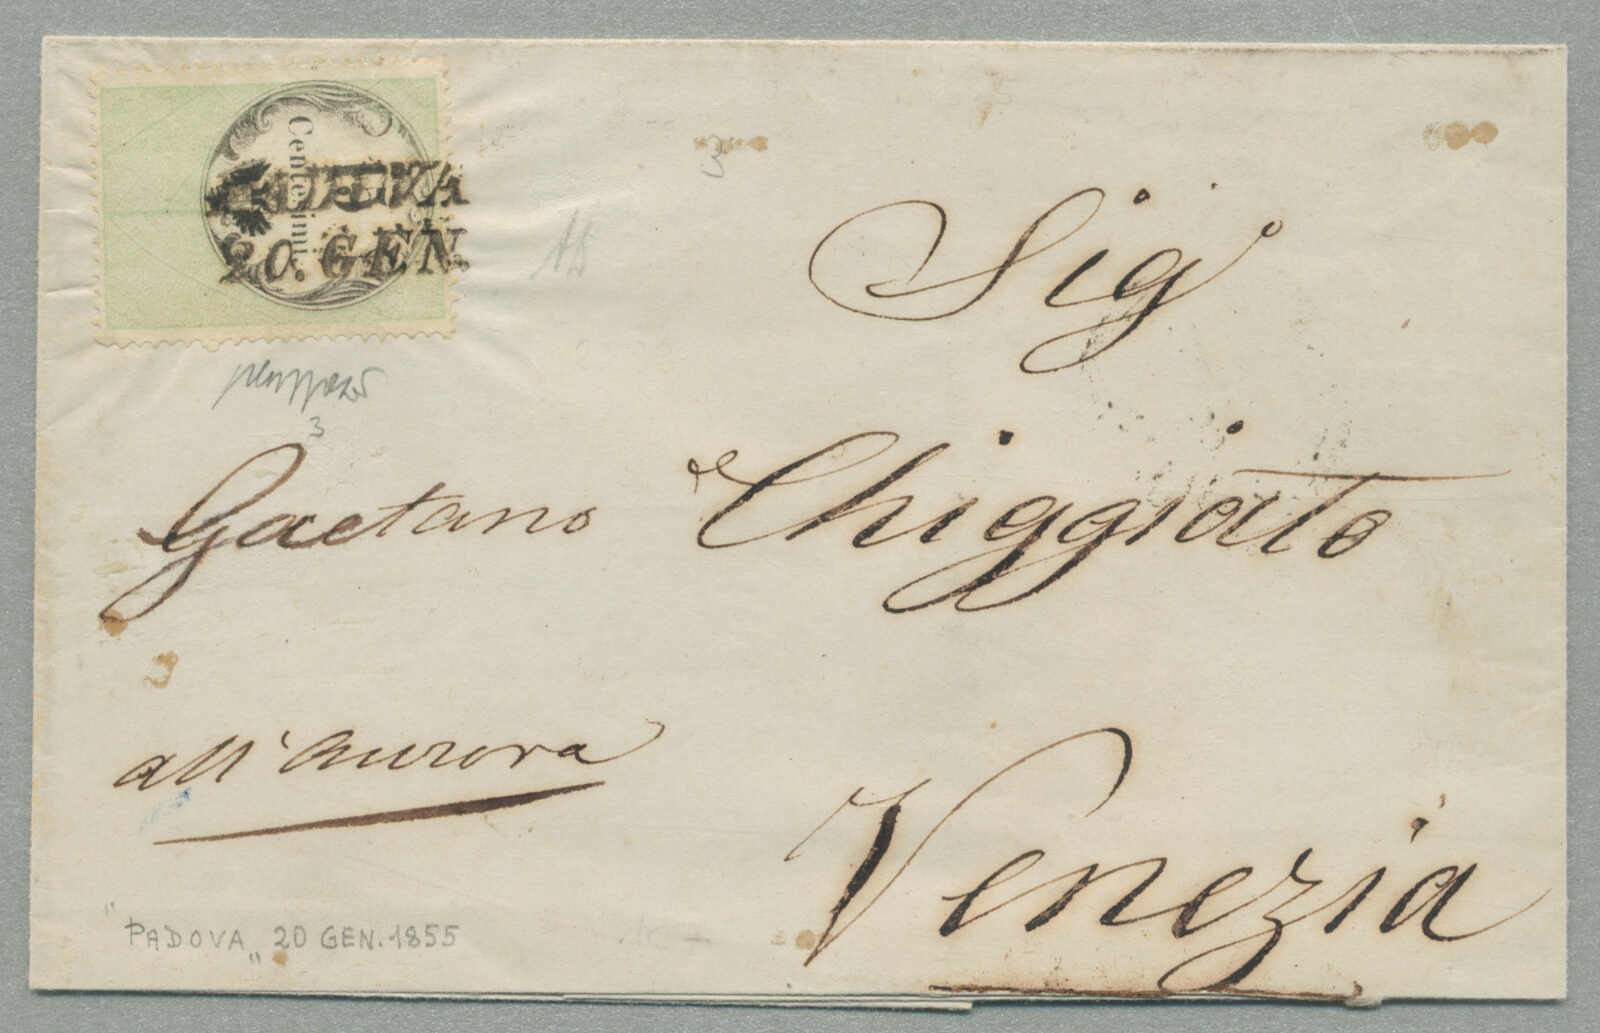 Centesimi.
20. GEN.
Sig
Gaetano Chiggiato
all'Aurora
Venezia
"PADOVA" 20 GEN. 1855
3
3